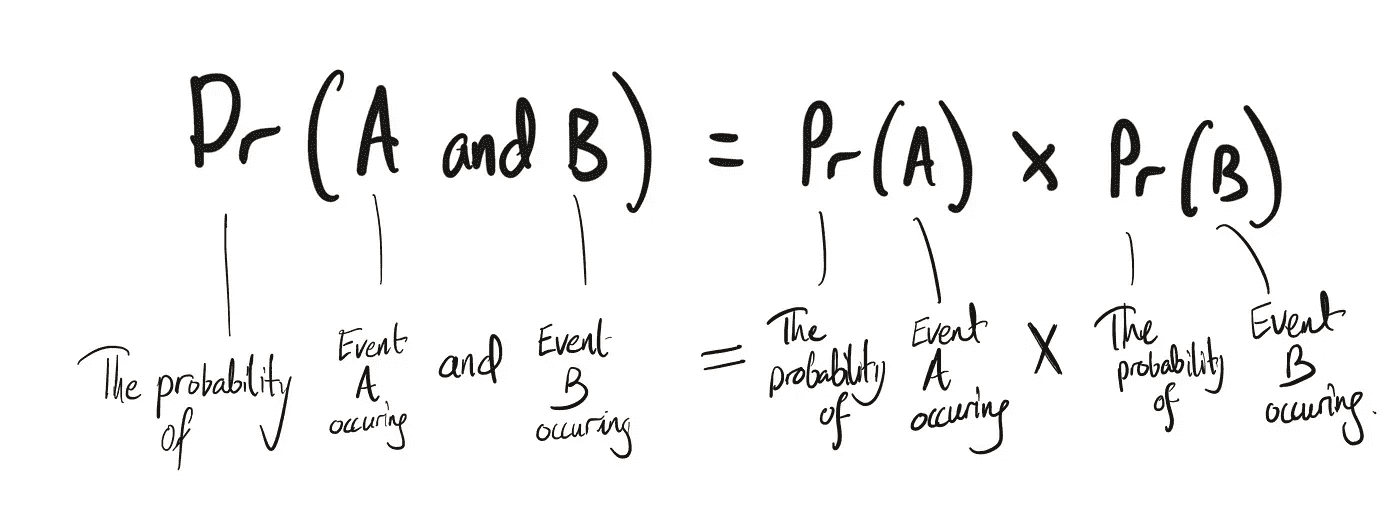 Pr (A and B) = Pr (A) × Pr (B)
The probability of
Event A occuring
and
Event B occuring
=
The probability of
Event A occuring
×
The probability of
Event B occuring.